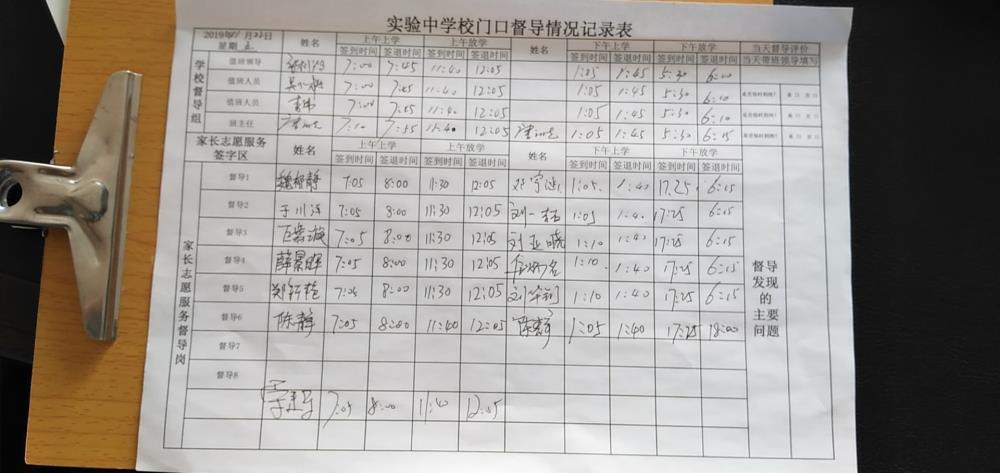 实验中学校门口督导情况记录表
2019年11月22日 姓名 上午上学 上午放学 姓名 下午上学 下午放学 当天督导评价
星期五 签到时间 签退时间 签到时间 签退时间 签到时间 签退时间 签到时间 签退时间 当天带班领导填写
学校督导组
值班领导 7:00 7:45 11:40 12:05 1:05 1:45 5:30 6:10
值班人员 7:00 7:55 11:40 12:05 1:05 1:45 5:30 6:10
值班人员 7:00 7:55 11:40 12:05 1:05 1:45 5:30 6:10
班主任 7:10 7:55 11:40 12:05 1:05 1:45 5:30 6:15
家长志愿服务 姓名 上午上学 上午放学 姓名 下午上学 下午放学
签字区 签到时间 签退时间 签到时间 签退时间 签到时间 签退时间 签到时间 签退时间
家长志愿服务督导岗
督导1 7:05 8:00 11:30 12:05 1:05 1:40 17:25 6:15
督导2 于川洋 7:05 8:00 11:30 12:05 刘一 1:05 1:40 17:25 6:15
督导3 7:05 8:00 11:30 12:05 刘亚晓 1:10 1:40 17:25 6:15
督导4 薛景晖 7:05 8:00 11:30 12:05 1:10 1:40 17:25 6:15
督导5 7:05 8:00 11:30 12:05 刘华莉 1:10 1:40 17:25 6:15
督导6 陈静 7:05 8:00 11:40 12:05 陈静 1:05 1:40 17:25 18:00
督导7
督导8
7:05 8:00 11:40 12:05
督导
发现
的
主要
问题